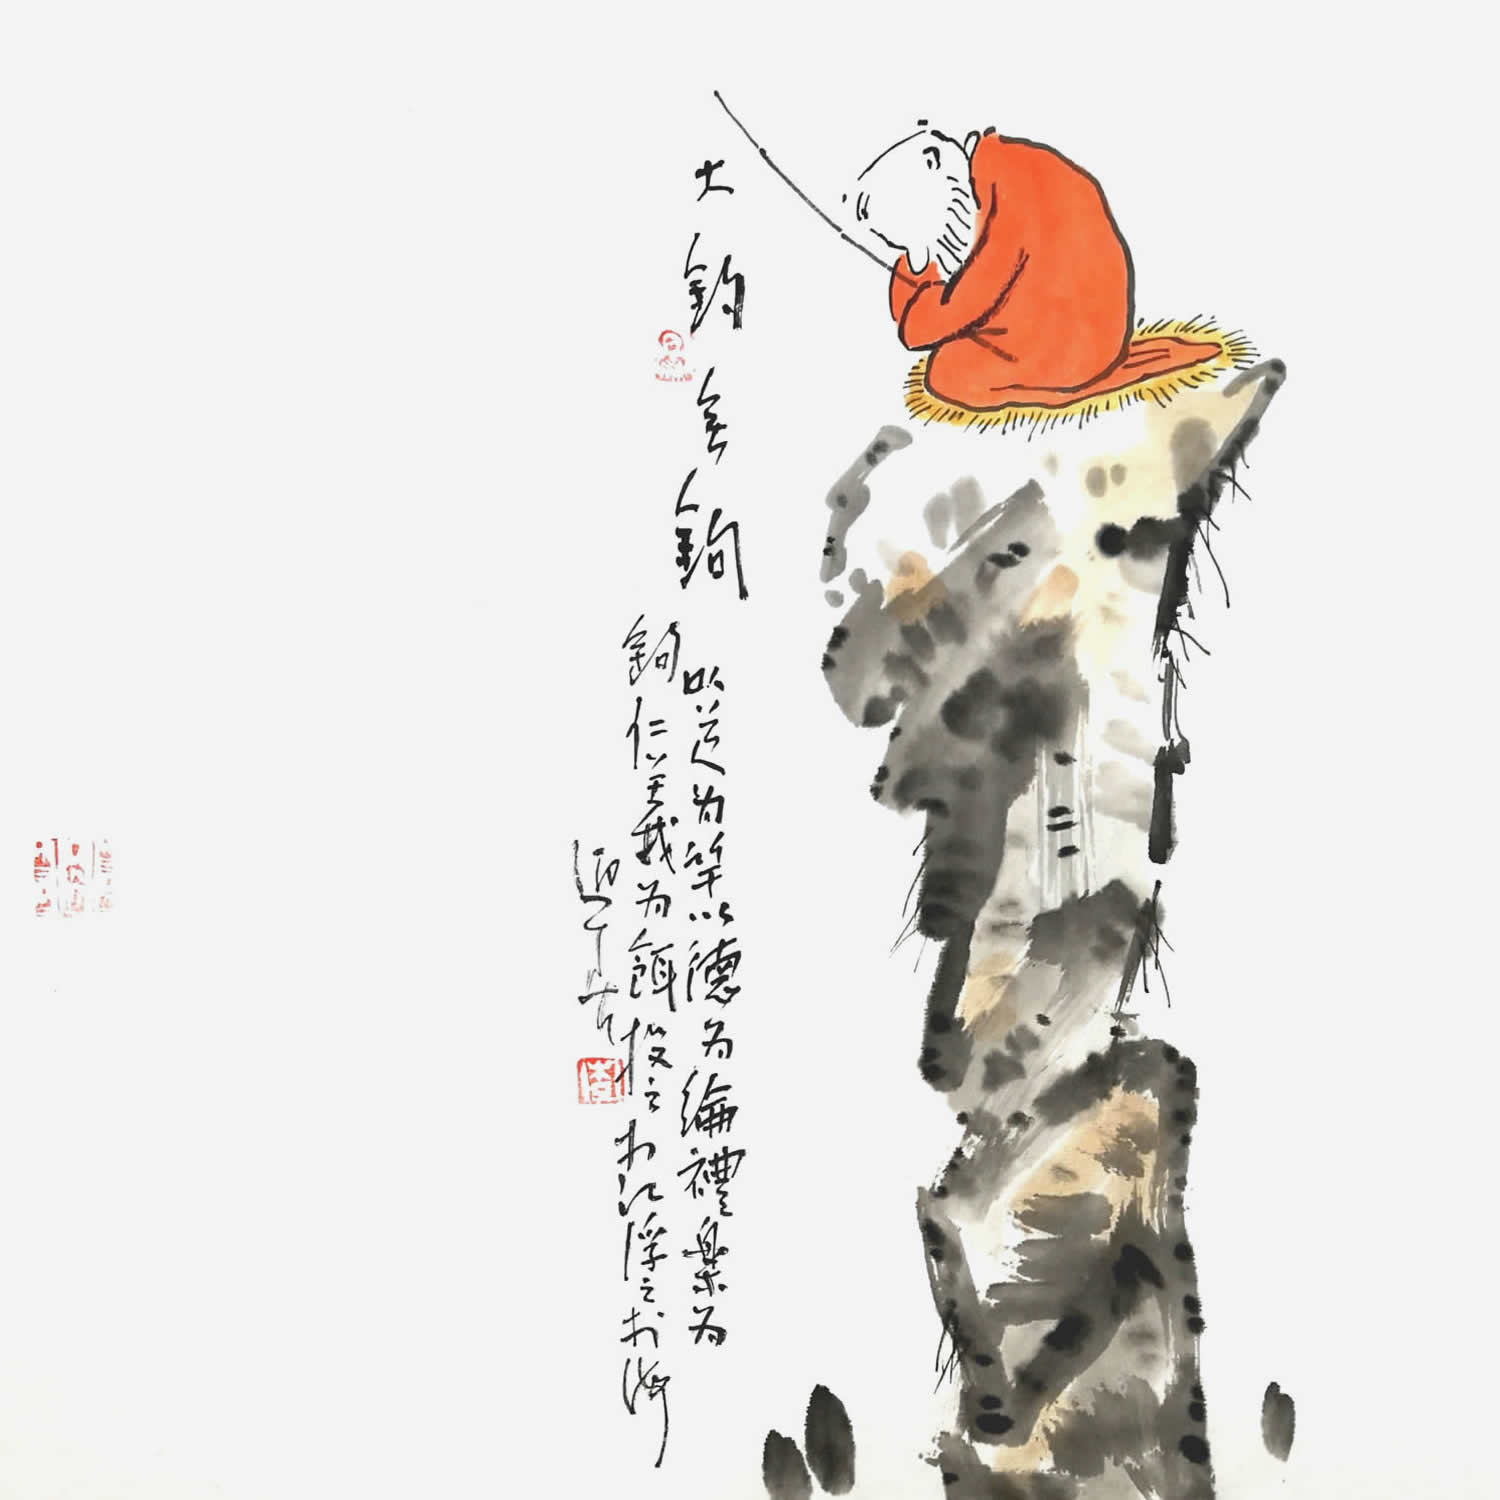 大釣無鉤
以道为竿以德为綸禮樂为
鉤仁義为餌投之於江浮之於海